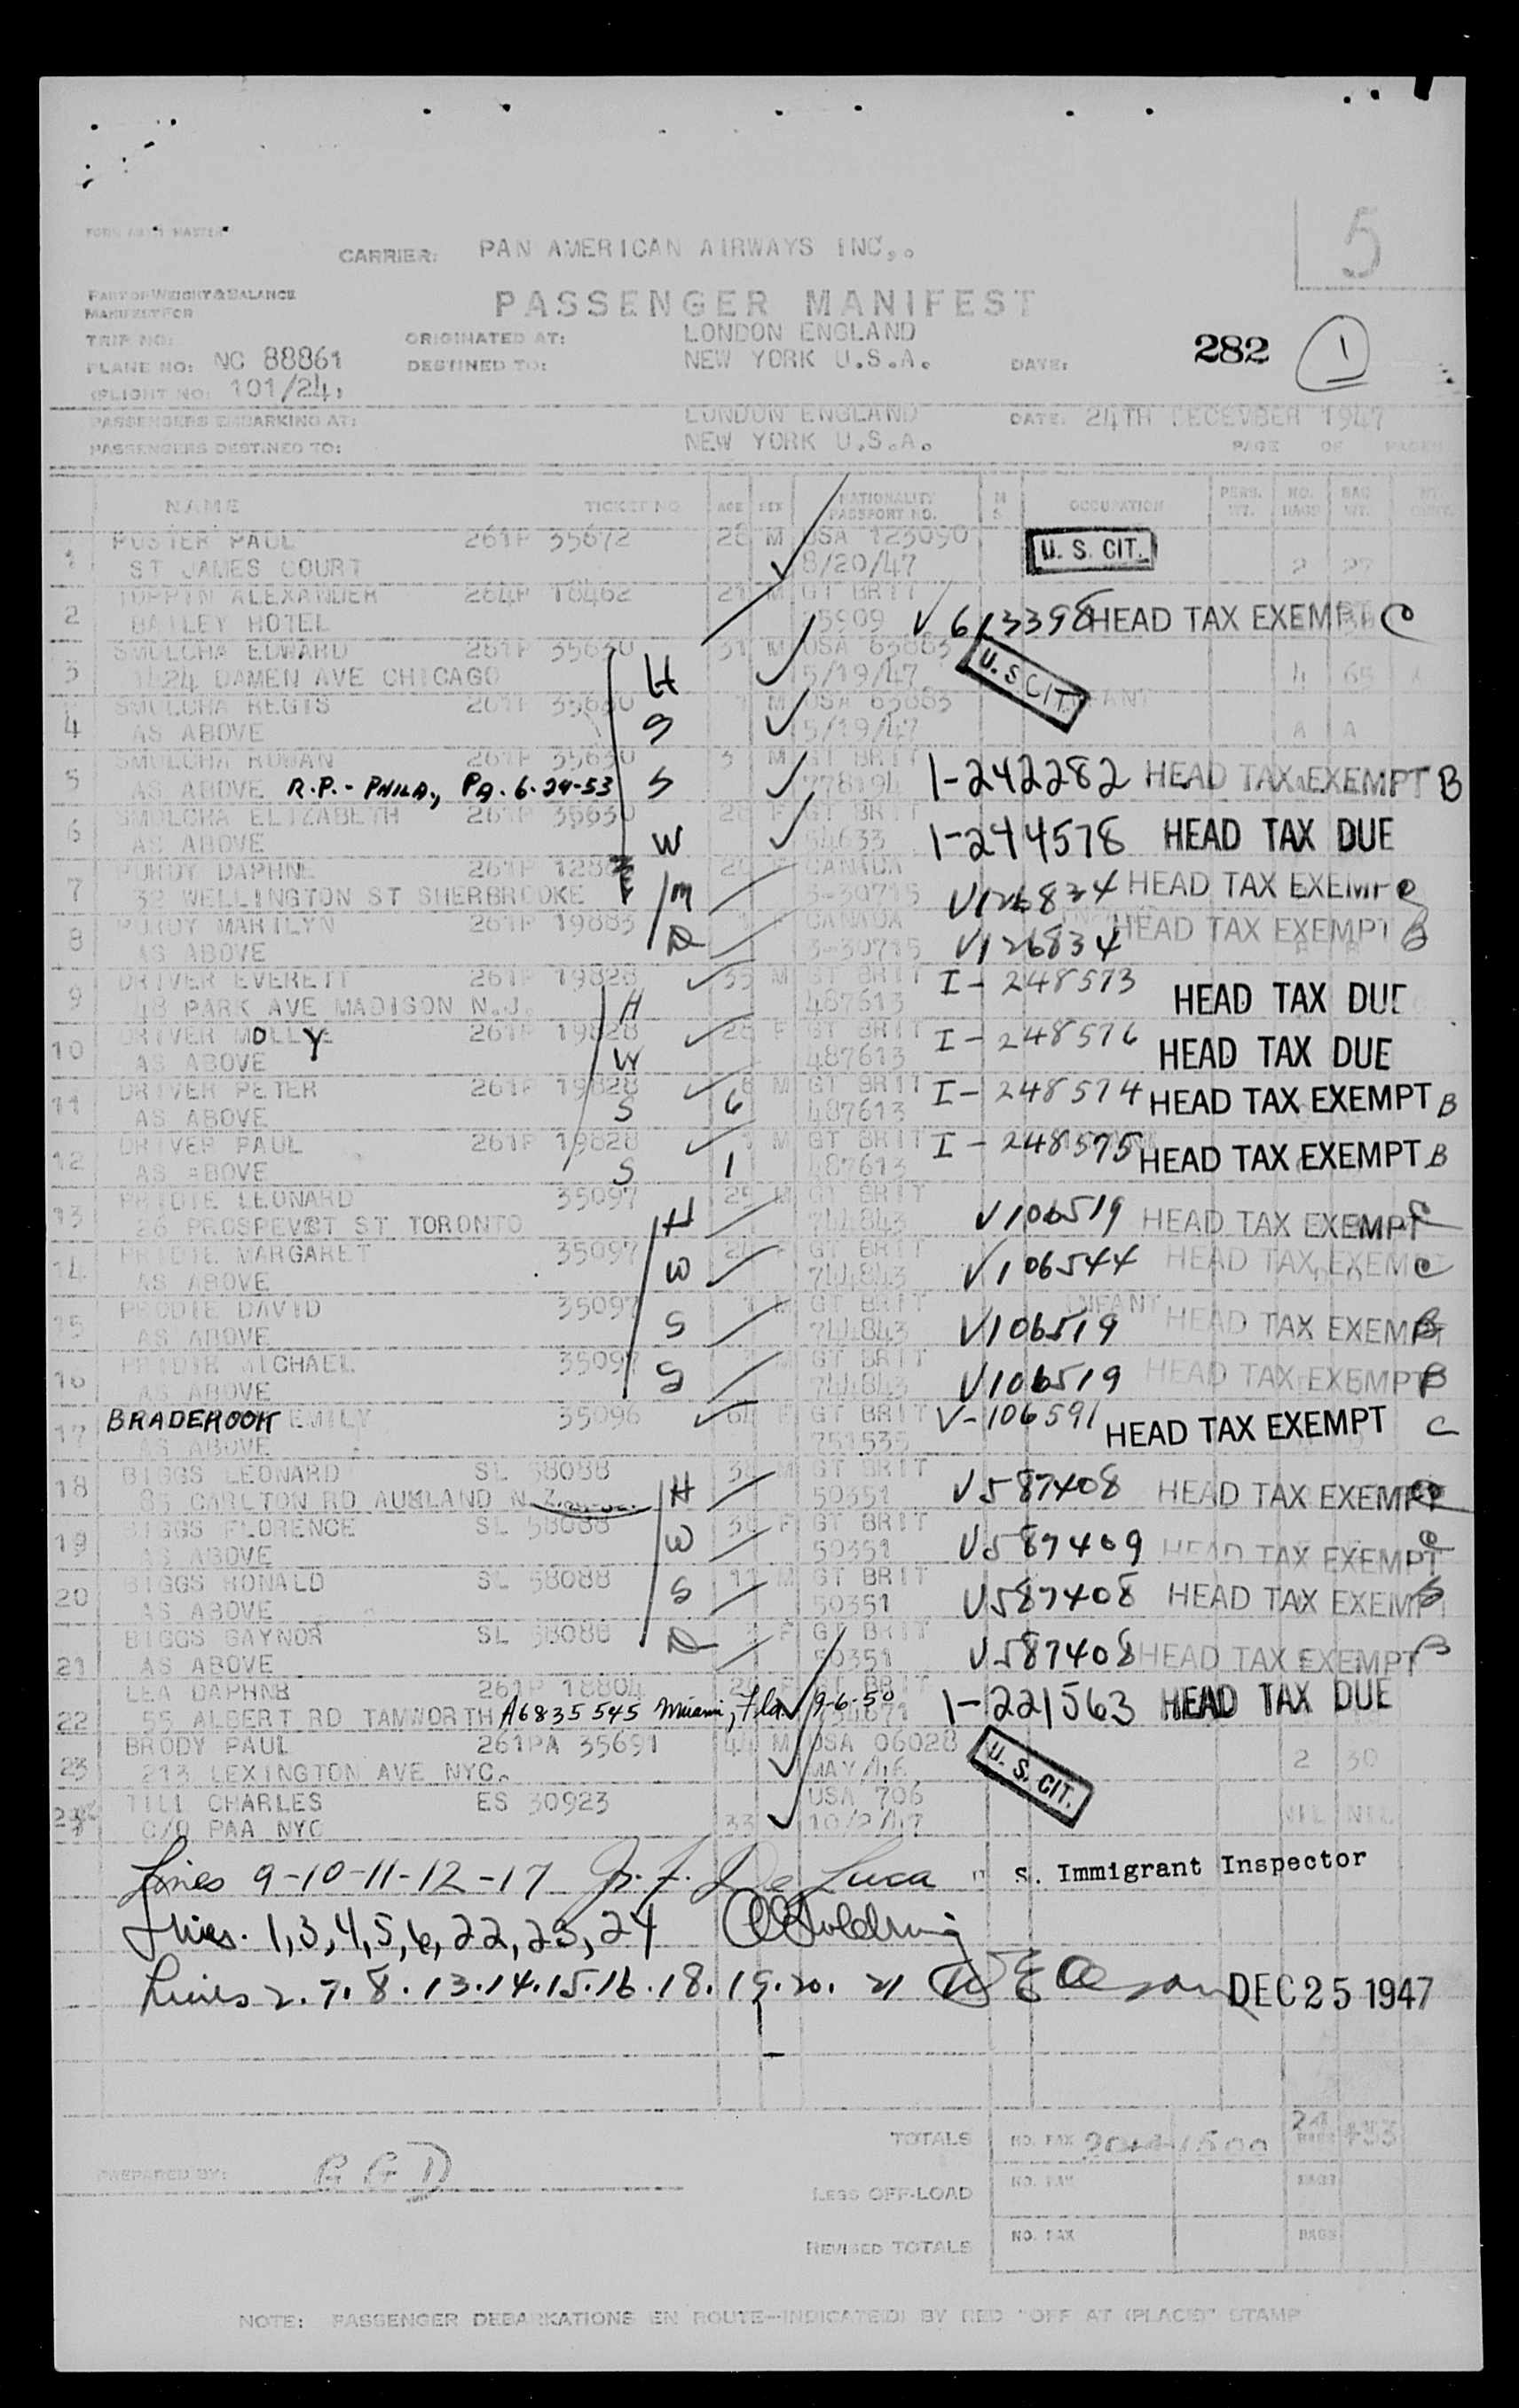 5
CARRIER: PAN AMERICAN AIRWAYS INC.
PART OF WEIGHT & BALANCE
MANIFEST FOR
PASSENGER MANIFEST
TRIP NO: ORIGINATED AT: LONDON ENGLAND 282 1
PLANE NO: NC 88861 DESTINED TO: NEW YORK U.S.A. DATE:
FLIGHT NO: 101/24,
PASSENGERS EMBARKING AT: LONDON ENGLAND DATE: 24TH DECEVBER 1947
PASSENGERS DESTINED TO: NEW YORK U.S.A. PAGE OF PAGES
NAME TICKET NO. AGE SEX NATIONALITY PASSPORT NO. M S OCCUPATION PERS. WT. NO. BAGS BAG WT.
1 PAUL 261P 35672 28 M USA 123090 U. S. CIT.
ST JAMES COURT 8/20/47 2 27
2 ALEXANDER 264P 18462 21 M GT BRIT
HOTEL V 613398 HEAD TAX EXEMPT C
3 SMOLCHA EDWARD 261P 35630 31 M USA 63883
1424 DAMEN AVE CHICAGO H 5/19/47 U. S. CIT. 4 65
4 SMOLCHA REGIS 261P 35630 M USA 63883 INFANT
AS ABOVE S 5/19/47 A A
5 SMOLCHA 261P 35630 3 M GT BRIT
AS ABOVE R.P.- PHILA., PA. 6-24-53 S 778194 1-242282 HEAD TAX EXEMPT B
6 SMOLCHA ELIZABETH 261P 35630 26 F GT BRIT
AS ABOVE W 54633 1-244578 HEAD TAX DUE
7 PURDY DAPHNE 261P CANADA
32 WELLINGTON ST SHERBROOKE M 3-30715 V126834 HEAD TAX EXEMPT C
8 PURDY MARILYN 261P 19883 1 F CANADA
AS ABOVE D 3-30715 V126834 HEAD TAX EXEMPT B
9 DRIVER EVERETT 261P 19828 35 M GT BRIT I-248573
48 PARK AVE MADISON N.J. H 487613 HEAD TAX DUE
10 DRIVER MOLLY 261P 19828 28 F GT BRIT I-248576
AS ABOVE W 487613 HEAD TAX DUE
11 DRIVER PETER 261P 19828 M GT BRIT I-248574
AS ABOVE S 6 487613 HEAD TAX EXEMPT B
12 DRIVER PAUL 261P 19828 1 M GT BRIT I-248575
AS ABOVE S 1 487613 HEAD TAX EXEMPT B
13 PRIDIE LEONARD 35097 25 M GT BRIT
26 PROSPEVCT ST TORONTO H 744843 V106519 HEAD TAX EXEMPT C
14 PRIDIE MARGARET 35097 F GT BRIT
AS ABOVE W 744843 V106544 HEAD TAX EXEMPT C
15 PRODIE DAVID 35097 M GT BRIT INFANT
AS ABOVE S 744843 V106519 HEAD TAX EXEMPT B
16 PRIDIE MICHAEL 35097 M GT BRIT
AS ABOVE S 744843 V106519 HEAD TAX EXEMPT B
17 BRADEHOOK EMILY 35096 64 F GT BRIT V-106591
AS ABOVE 751535 HEAD TAX EXEMPT C
18 BIGGS LEONARD SL 58088 38 M GT BRIT
85 CARLTON RD AUKLAND N.Z. H 50351 V587408 HEAD TAX EXEMPT C
19 BIGGS FLORENCE SL 58088 38 F GT BRIT
AS ABOVE W 50351 V587409 HEAD TAX EXEMPT C
20 BIGGS RONALD SL 58088 11 M GT BRIT
AS ABOVE S 50351 V587408 HEAD TAX EXEMPT B
21 BIGGS GAYNOR SL 58088 F GT BRIT
AS ABOVE D 50351 V587408 HEAD TAX EXEMPT B
22 LEA DAPHNE 261P 18804 F GT BRIT
55 ALBERT RD TAMWORTH A6835545 Miami, Fla 9-6-50 1-221563 HEAD TAX DUE
23 BRODY PAUL 261PA 35691 44 M USA 06028
213 LEXINGTON AVE NYC. MAY/46 U. S. CIT. 2 30
24 TILL CHARLES ES 30923 USA 706
C/O PAA NYC 33 10/2/47 NIL NIL
Lines 9-10-11-12-17 J. F. De Luca S. Immigrant Inspector
Lines. 1,3,4,5,6,22,23,24
Lines 2.7.8.13.14.15.16.18.19.20. 21 DEC 25 1947
TOTALS NO. PAX BAGS
PREPARED BY: G G D
LESS OFF-LOAD NO. PAX BAGS
REVISED TOTALS NO. PAX BAGS
NOTE: PASSENGER DEBARKATIONS EN ROUTE—INDICATED BY RED "OFF AT (PLACE)" STAMP